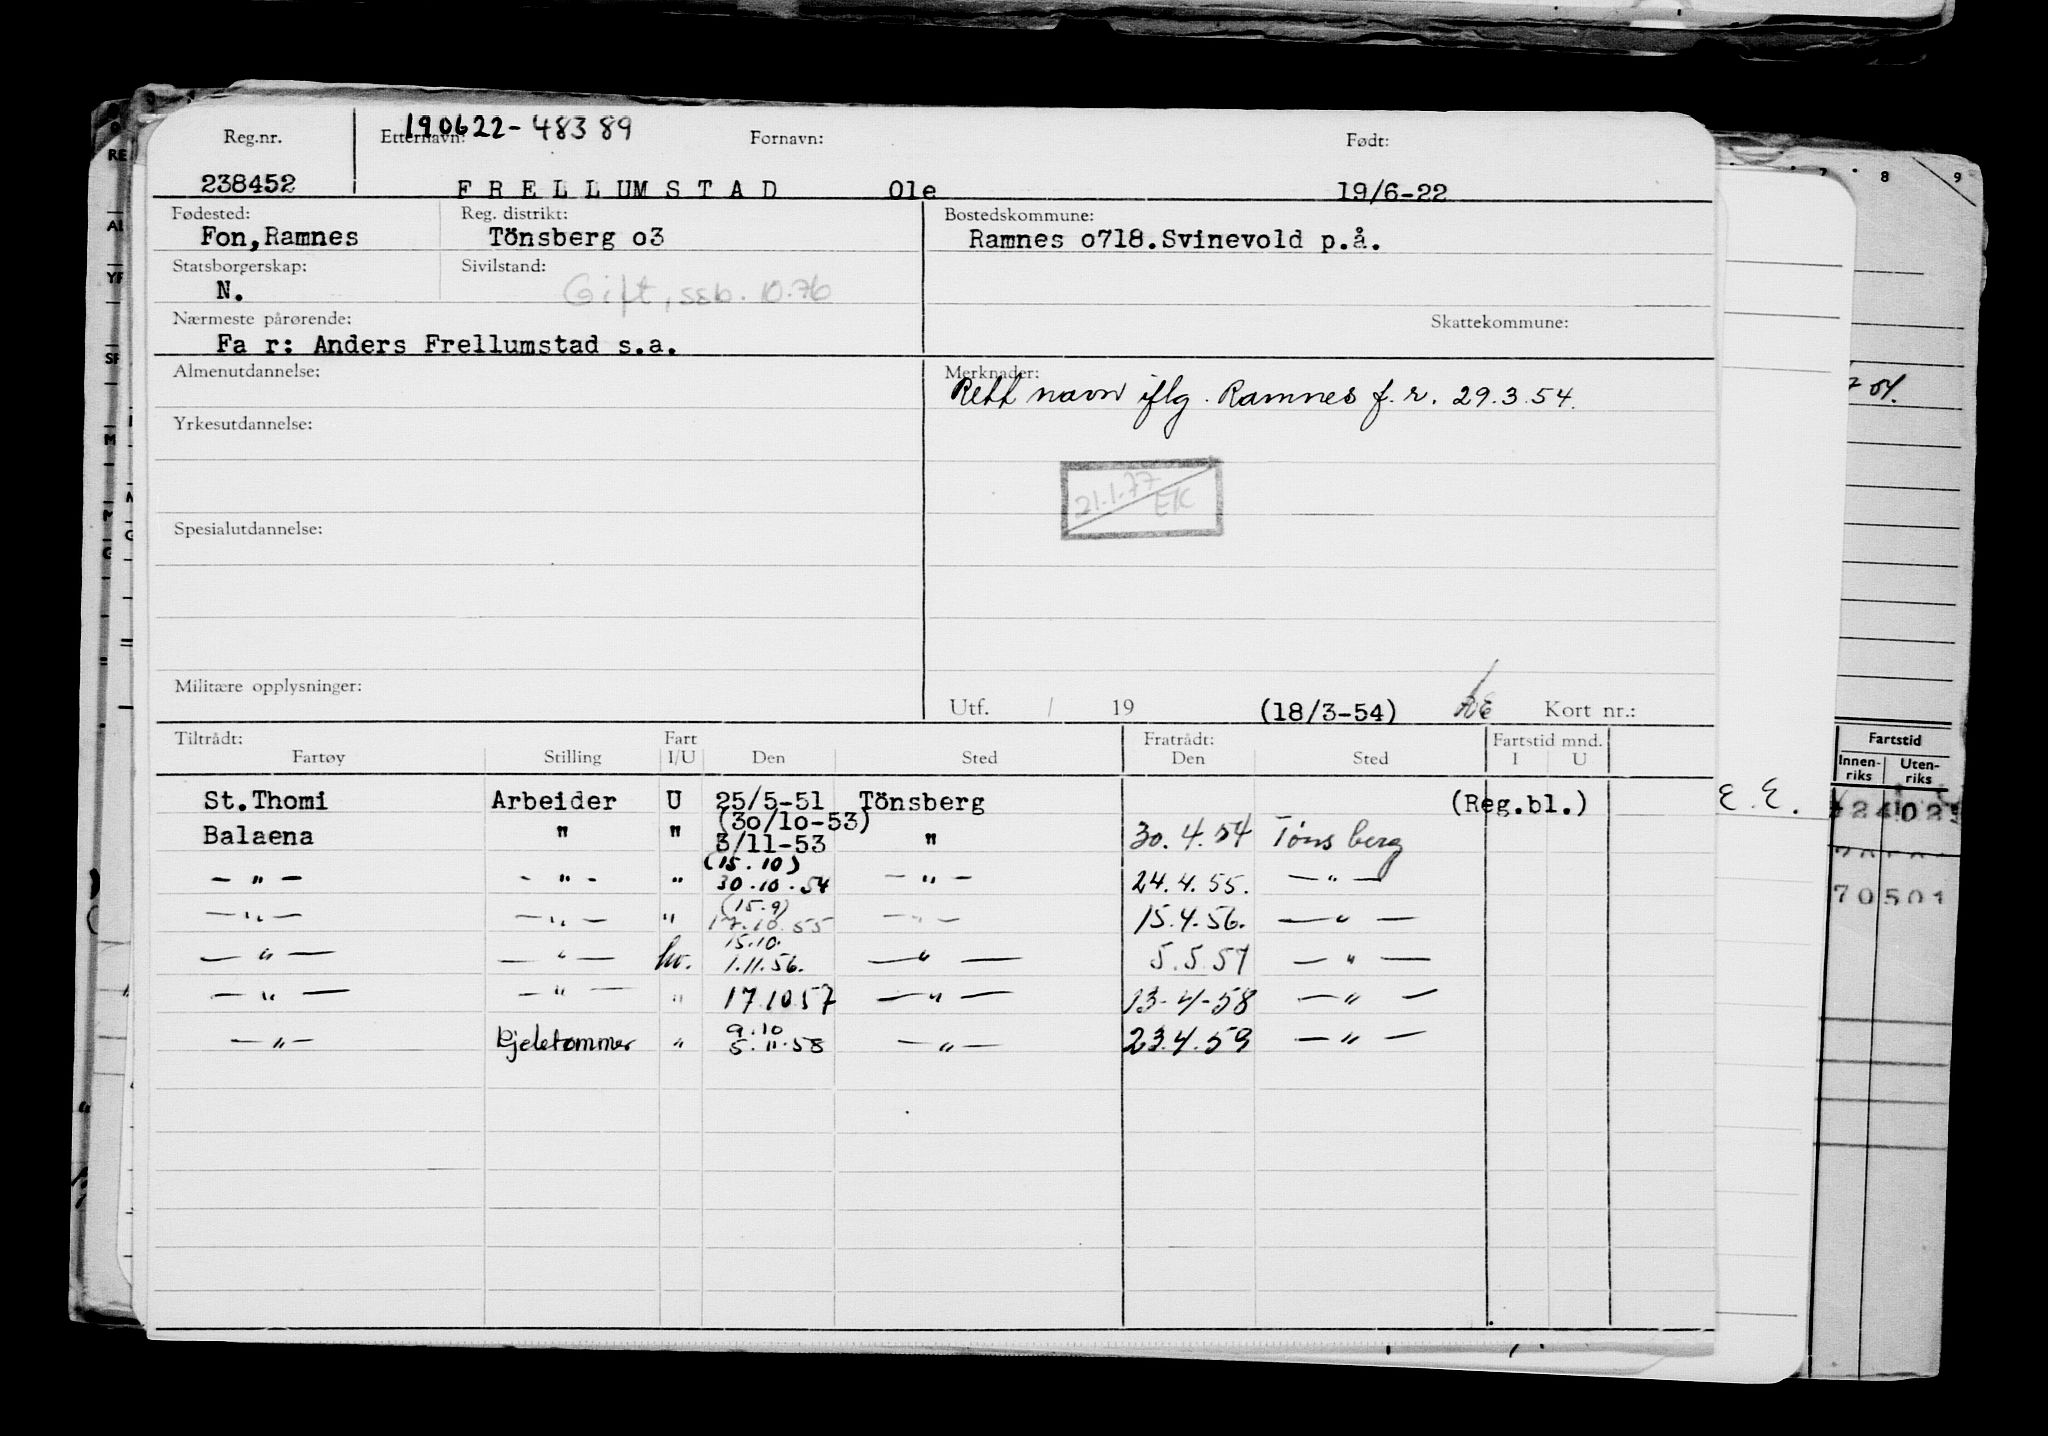 190622-48389
Reg.nr. Etternavn: Fornavn: Født:
238452 F R E L L UM S T A D Ole 19/6-22
Fødested: Reg. distrikt: Bostedskommune:
Fon,Ramnes Tönsberg o3 Ramnes o718.Svinevold p.å.
Statsborgerskap: Sivilstand:
N. Gift, ssb. 10.76
Nærmeste pårørende: Skattekommune:
Fa r: Anders Frellumstad s.a.
Almenutdannelse: Merknader:
Rett navn iflg. Ramnes f.r. 29.3.54.
Yrkesutdannelse:
21.1.77 EK
Spesialutdannelse:
Militære opplysninger:
Utf. / 19 (18/3-54) Kort nr.:
Tiltrådt: Fart Fratrådt: Fartstid mnd.
Fartøy Stilling I/U Den Sted Den Sted I U
St.Thomi Arbeider U 25/5-51 Tönsberg (Reg.bl.)
(30/10-53)
Balaena " " 3/11-53 " 30.4.54 Tønsberg
(15.10)
— " — - " - " 30.10.54 — " — 24.4.55. — " —
(15.9)
— " — — " — " 17.10.55 — " — 15.4.56. — " —
15.10.
— " — — " — hv. 1.11.56. — " — 5.5.57 — " —
— " — — " — " 17.10.57 — " — 13-4-58 — " —
9.10
— " — kjeletømmer " 5.11.58 — " — 23.4.59 — " —
E. E.
8 9
Fartstid
Innen-riks Uten-riks
70501